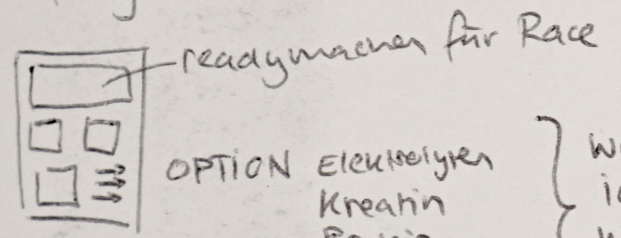 readymachen für Race
OPTION Elektrolyten
Kreatin